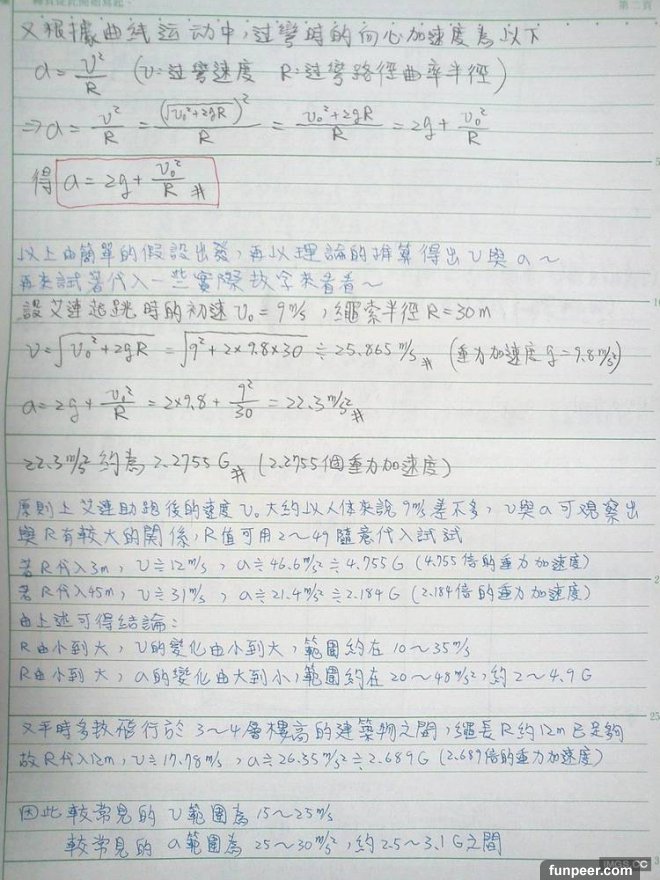 第二頁
又根據曲线运动中,过彎時的向心加速度為以下
a = v²/R (v:过彎速度 R:过彎路徑曲率半徑)
⇒ a = v²/R = (√(v₀²+2gR))²/R = (v₀²+2gR)/R = 2g + v₀²/R
得 a = 2g + v₀²/R #
以上由簡單的假設出發,再以理論的推算得出 v 與 a ~
再來試著代入一些實際数字來看看~
設艾連起跳時的初速 v₀ = 9 m/s ,繩索半徑 R = 30 m
v = √(v₀²+2gR) = √(9²+2×9.8×30) ≒ 25.865 m/s # (重力加速度 g = 9.8 m/s²)
a = 2g + v₀²/R = 2×9.8 + 9²/30 = 22.3 m/s² #
22.3 m/s² 約為 2.2755 G # (2.2755個重力加速度)
原則上艾連助跑後的速度 v₀ 大約以人体來說 9 m/s 差不多, v 與 a 可观察出
與 R 有較大的関係, R值可用 2~49 隨意代入試試
若 R代入3m, v ≒ 12 m/s , a ≒ 46.6 m/s² ≒ 4.755 G (4.755 倍的重力加速度)
若 R代入45m, v ≒ 31 m/s , a ≒ 21.4 m/s² ≒ 2.184 G (2.184 倍的重力加速度)
由上述可得結論:
R由小到大, v的變化由小到大,範圍約在 10~35 m/s
R由小到大, a的變化由大到小,範圍約在 20~48 m/s²,約 2~4.9 G
又平時多数飛行於 3~4層樓高的建築物之間,繩長R約12m已足夠
故R代入12m, v ≒ 17.78 m/s , a ≒ 26.35 m/s² ≒ 2.689 G (2.689倍的重力加速度)
因此較常見的 v 範圍為 15~25 m/s
較常見的 a 範圍為 25~30 m/s²,約 2.5~3.1 G之間
IMGS.CC
funpeer.com